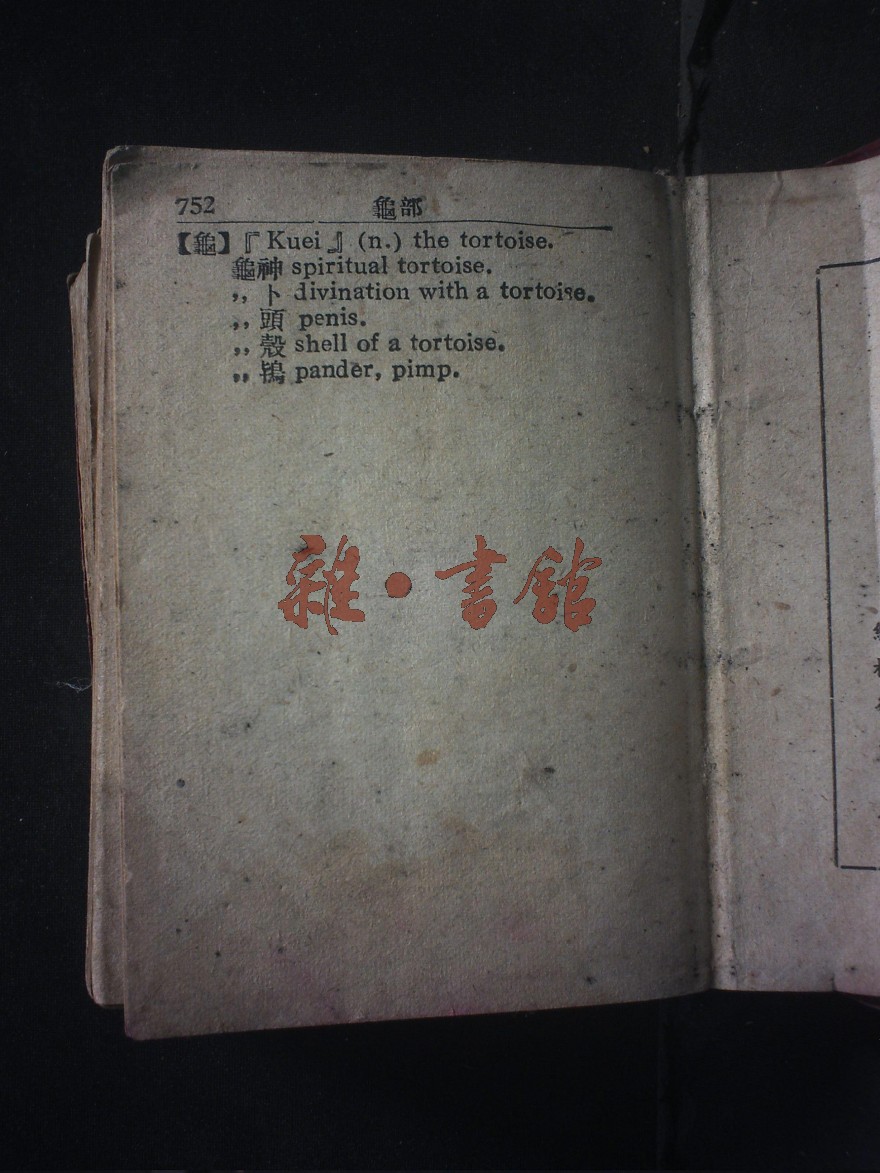 752 龜部
【龜】『Kuei』(n.) the tortoise.
龜神 spiritual tortoise.
,, 卜 divination with a tortoise.
,, 頭 penis.
,, 殼 shell of a tortoise.
,, 鴇 pander, pimp.
雜·書館